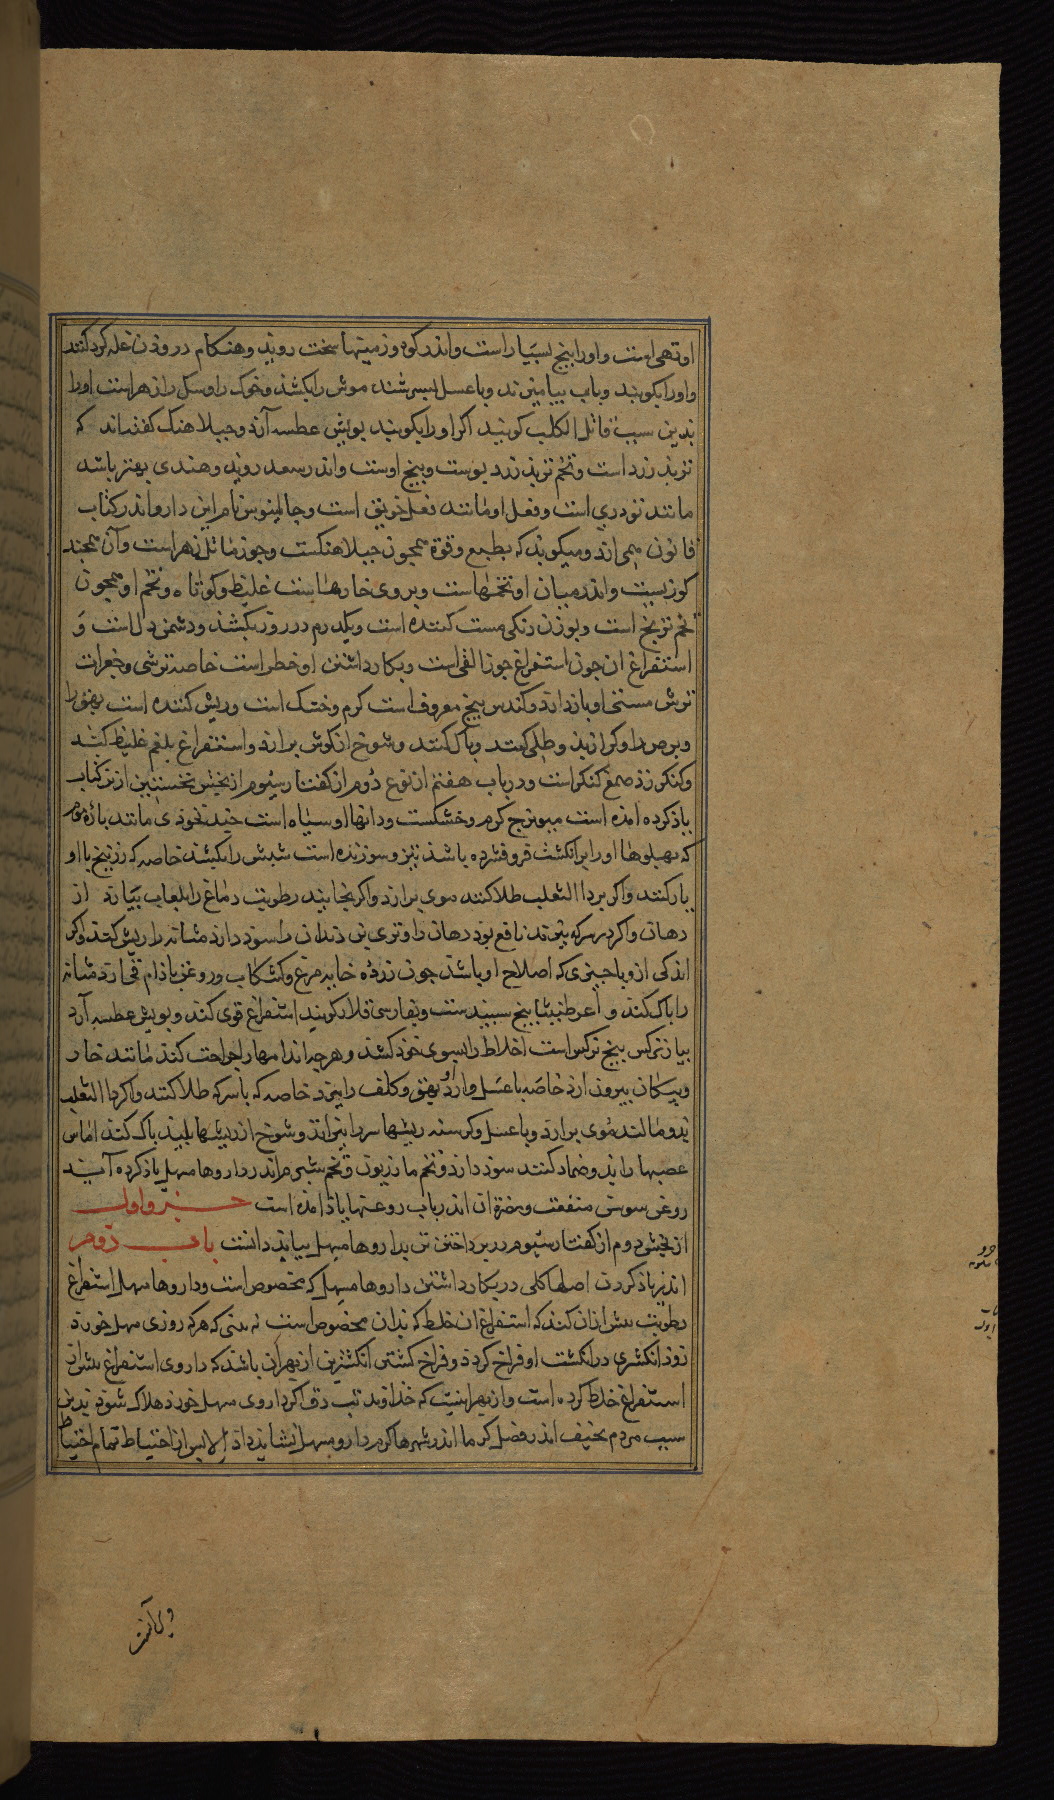 او تهی است و او را بیخ بسیار است و اندر کوه و زمینها سخت روید و هنکام درودن غله کرد کنند
و او را بکوبند و باب بیامیزند و با عسل بسرشند موش را بکشذ و خوک را و سک را زهر است او را
بدین سبب قاتل الکلب کویند اکر او را بکوبند بویش عطسه آرذ و جبلاهنک کفته‌اند که
تربذ زرد است و تخم تربذ زرد پوست و بیخ اوست و اندر سعد روید و هندی بهتر باشد
مانند تودری است و فعل او مانند فعل خربق است و جالینوس نام این دارو اندر کتاب
قانون همی ارد و میکوید که بطبع و قوة همچون جبلاهنکست و جوز ماثل زهر است و آن همچند
کوزیست و اندر میان او تخمهاست و بر روی خارهاست غلیظ و کوتاه و تخم او همچون
تخم ترنج است و بوزن دنکی مست کننده است و یکدرم در روز بکشذ و دشمن دل است و
استفراغ ان چون استفراغ جوز القی است و بکار داشتن او خطر است خاصه ترشی و جغرات
ترش مستی او باز دارد و کندس بیخ معروف است کرم و خشک است و ریش کننده است بهق را
و برص را و کر از بذ و طلی کنند و پاک کند و شوخ از کوش برارد و استفراغ بلغم غلیظ کند
و کنکرزذ صمغ کنکر است و در باب هفتم از نوع دُوم از کفتار سیُوم از بخش نخستین از نیز کتاب
یاذ کرده امده است میویزج کرم و خشکست و دانها او سیاه است چند نخوذی مانند پارهٔ موم
که پهلوها او را بر انکشت فرو فشرده باشذ تیز و سوزنده است شبش را بکشذ خاصه که زرنیخ با او
یار کنند و اکر بر داء الثعلب طلا کنند موی برارد و اکر بخایند رطوبت دماغ را بلعاب بیارد از
دهان و اکر در سرکه بپزند نافع بوذ دهان را و تری بن دندان را سوذ دارذ مثانه را ریش کند و اکر
اندکی از و با چیزی که اصلاح او باشذ چون زردهٔ خایه مرغ و کشکاب و روغن باذام قی ارد مثانه
را پاک کند و أعرطنیثا بیخ سپیدست و بفارسی قلار کویند استفراغ قوی کند و بویش عطسه آرد
پیاز نرکس بیخ نرکس است اخلاط را بسوی خوذ کشذ و هر چه اندامها را جراحت کند مانند خار
و پیکان بیرون ارذ خاصه با عسل و ارد و بهق و کلف را ببرد خاصه که با سرکه طلا کنند و اکر داء الثعلب
بدو مالند مُوی برارد و با عسل و کرسنه ریشها سر را بپزاند و شوخ از ریشها پلیذ پاک کند اماس
عصبها را بذو ضماد کنند سوذ دارذ و تخم مازریون و تخم شبرم اندر داروها مسهل یاذ کرده آیند
روغن سوسن منفعت و مضرة ان اندر باب روغنها یاذ امذه است جزو اول
از بخش دوم از کفتار سیُوم در پرداختن تن بداروها مسهل بباید دانست باب دوم
اندر یاذ کردن اصلها کلی در بکار داشتن داروها مسهل که مخصوص است و داروها مسهل استفراغ
رطوبت بیش از ان کنذ که استفراغ ان خلط که بذان مخصوص است نه بینی که هر که روزی مسهل خورذ
زوذ انکشتری در انکشت او فراخ کردذ و فراخ کشتن انکشترین از بهر ان باشذ که داروی استفراغ بیش از
استفراغ خلط کرده است و از بهر اینست که خذاوند تب دق اکر داروی مسهل خورذ هلاک شوذ بدین
سبب مردم نحیف اندر فصل کرما اندر شهرها کرم دارو مسهل نشاید داذ إلا پس از احتیاط تمام احتیاط